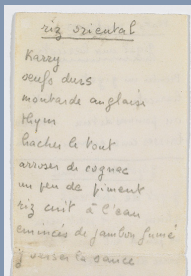 riz oriental
Karry
oeufs durs
moutarde anglaise
thym
hacher le tout
arroser de cognac
un peu de piment
riz cuit à l'eau
émincés de jambon fumé
y verser la sauce